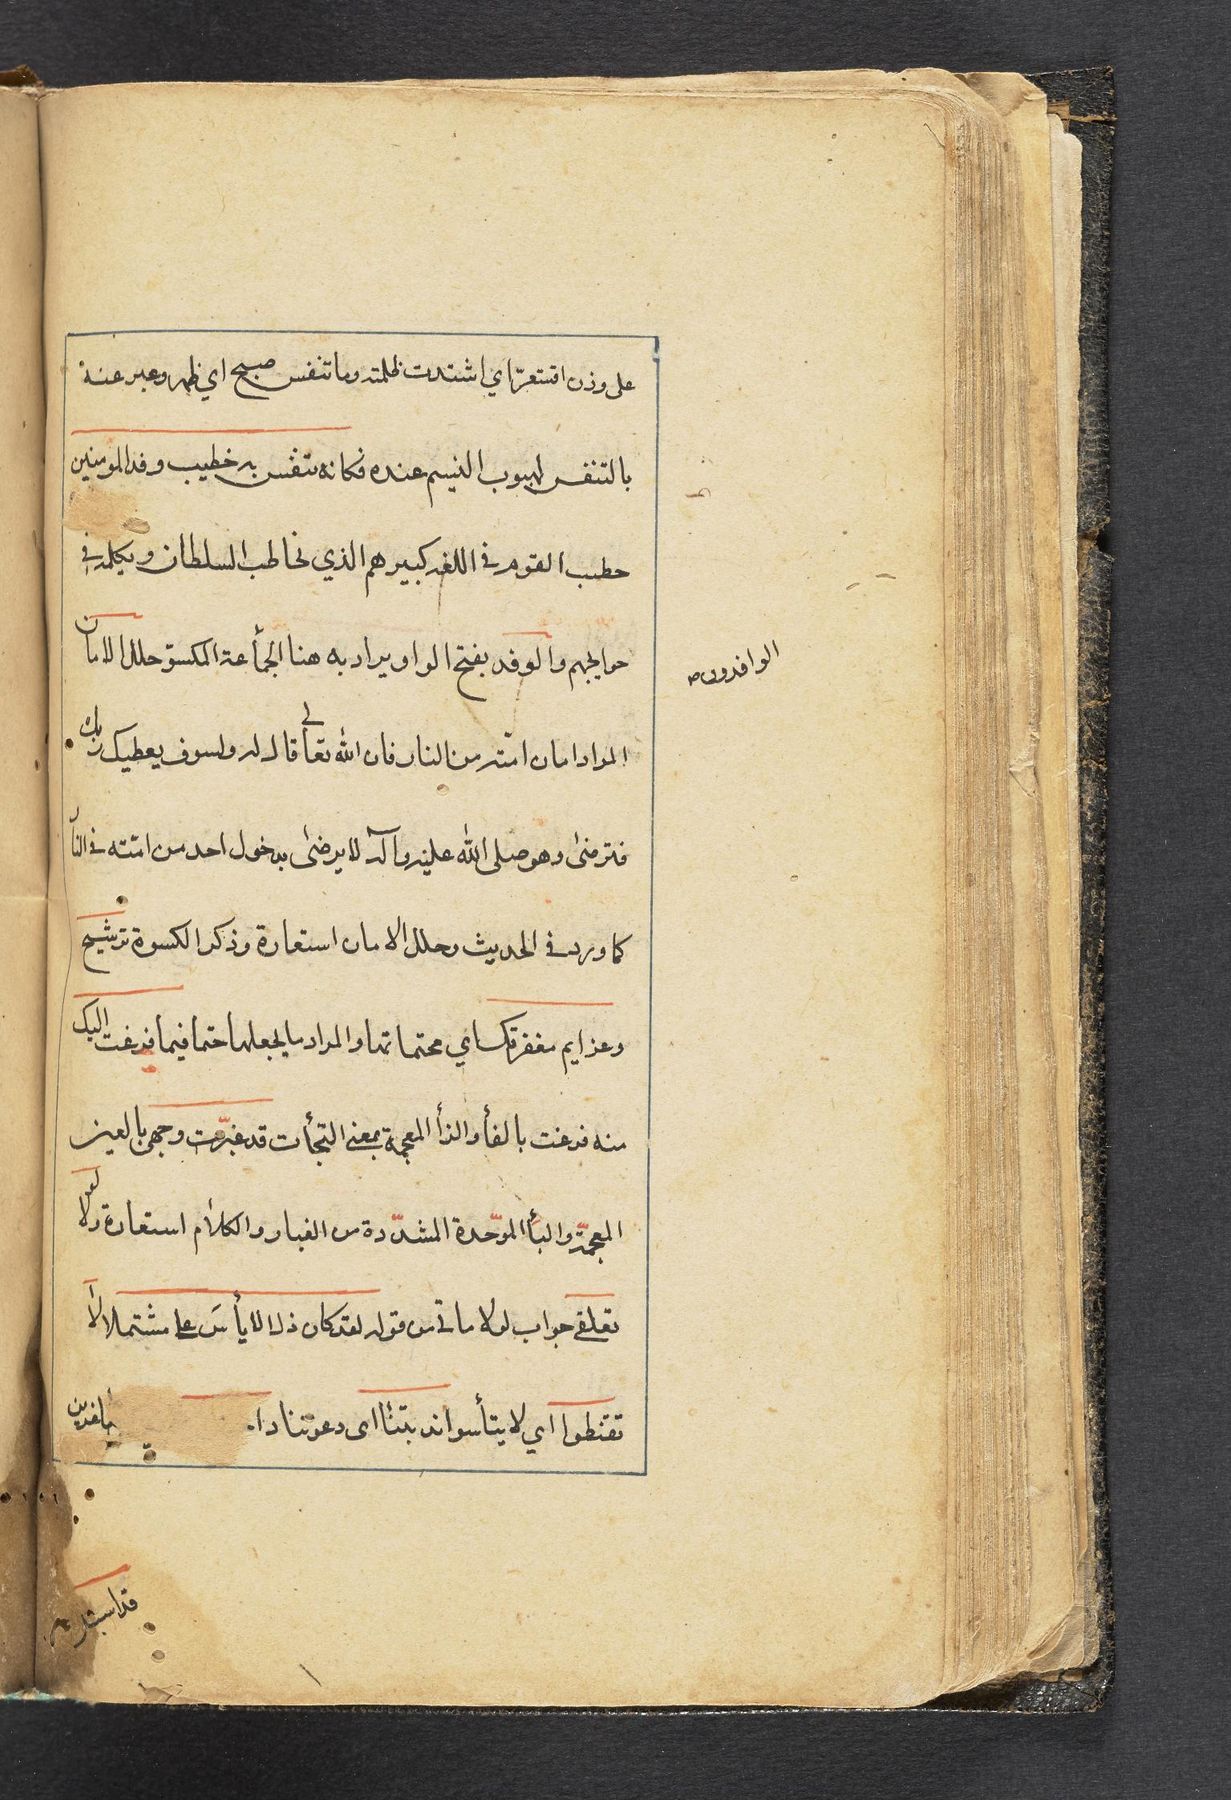 على وزن اقشعرّ اي اشتدت ظلمته وما تنفس صبح اي ظهر وعبر عنه
بالتنفس لهبوب النسيم عنده فكانه تنفس به خطيب وفد المومنين
خطيب القوم في اللغه كبيرهم الذي يخاطب السلطان ويكلمه في
حوايجهم والوفد بفتح الواو يراد به هنا الجمأعة المكسو حلل الامان
الوافدون
المراد امان امّته من النار فان الله تعالى قال له ولسوف يعطيك ربك
فترضى وهو صلى الله عليه وآله لا يرضى بدخول احد من امّته في النا
كما ورد في الحديث وحلل الامان استعارة وذكر الكسوة ترشيح
وعزايم مغفرتك اي محتماتها والمراد ما يجعلها حتما فيما فزعت اليك
منه فزعت بالفأ والزأ المعجمة بمعنى التجأت قد غبرّت وجهي بالغين
المعجمة والبأ الموحّدة المشدّدة من الغبار والكلام استعارة ولولا
تعلقي جواب لولا ما تي من قوله لقد كان ذل الايأس علي مشتملا لا
تقنطوا اي لا يتأسوا ندبتنا اي دعوتنا دا
قد استد